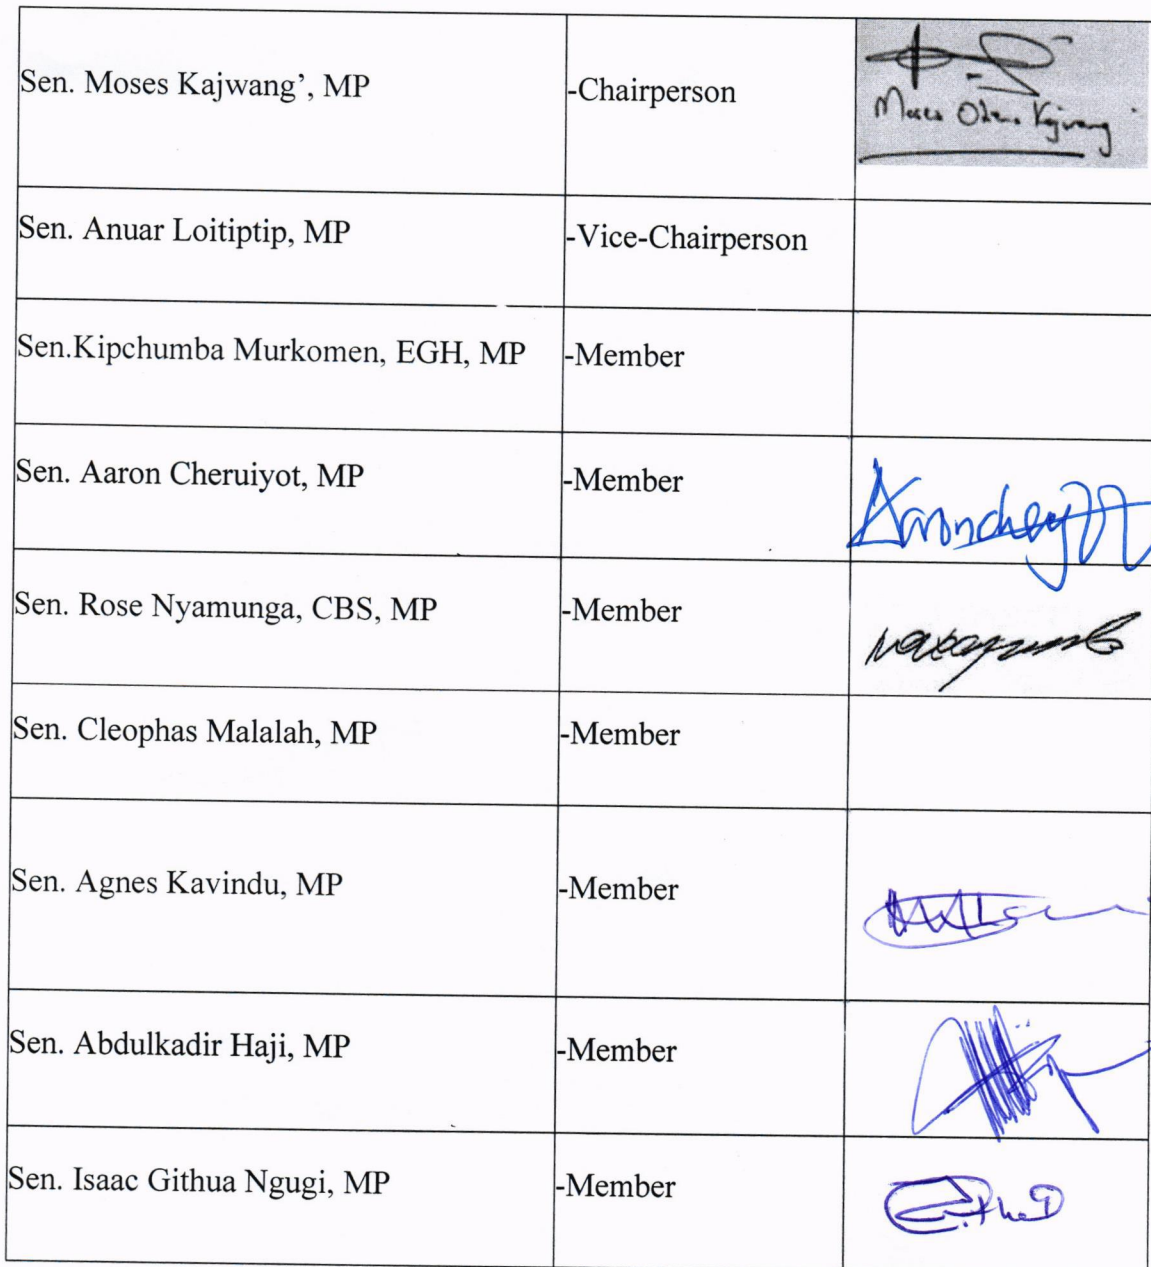 Sen. Moses Kajwang’, MP -Chairperson
Moses Otieno Kajwang
Sen. Anuar Loitiptip, MP -Vice-Chairperson
Sen.Kipchumba Murkomen, EGH, MP -Member
Sen. Aaron Cheruiyot, MP -Member
Sen. Rose Nyamunga, CBS, MP -Member
Sen. Cleophas Malalah, MP -Member
Sen. Agnes Kavindu, MP -Member
Sen. Abdulkadir Haji, MP -Member
Sen. Isaac Githua Ngugi, MP -Member